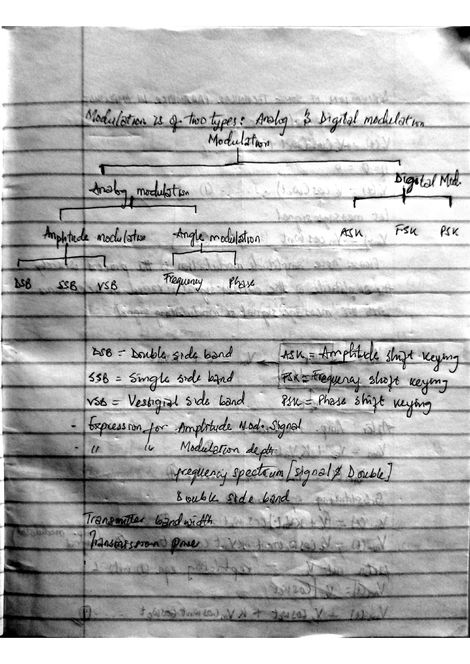 Modulation is of two types: Analog & Digital modulation
Modulation
Analog modulation Digital Mod.
Amplitude modulation Angle modulation ASK FSK PSK
DSB SSB VSB Frequency Phase
DSB = Double side band ASK = Amplitude shift keying
SSB = Single side band FSK = Frequency shift keying
VSB = Vestigial side band PSK = Phase shift keying
- Expression for Amplitude Mod. Signal
- " " Modulation depth
frequency spectrum [signal & Double]
Double side band
Transmitter bandwidth
Transmission